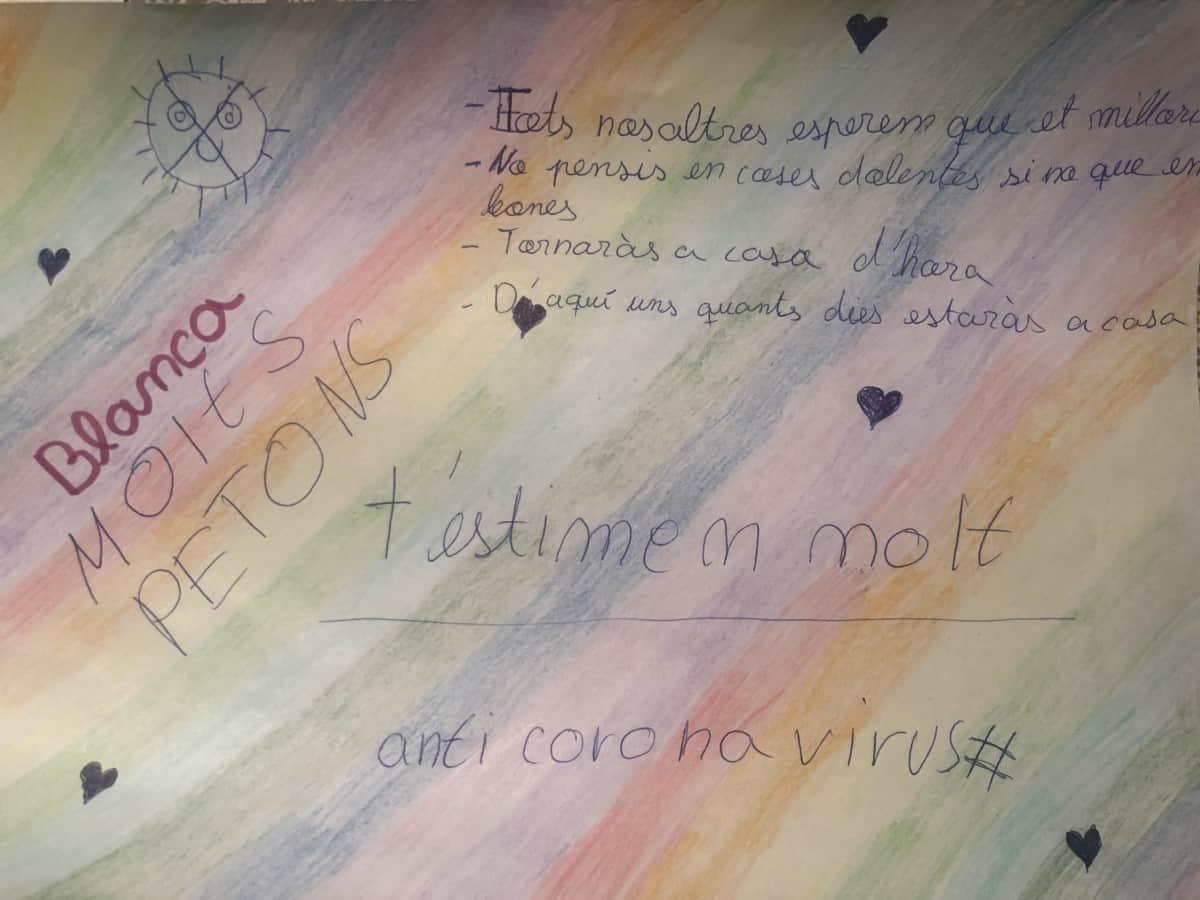 - Tots nosaltres esperem que et millor
- No pensis en coses dolentes si no que en
bones
- Tornaràs a casa d'hora
- D'aquí uns quants dies estaràs a casa
Blanca
MOltS
PETONS
t'éstimem molt
anti coronavirus#